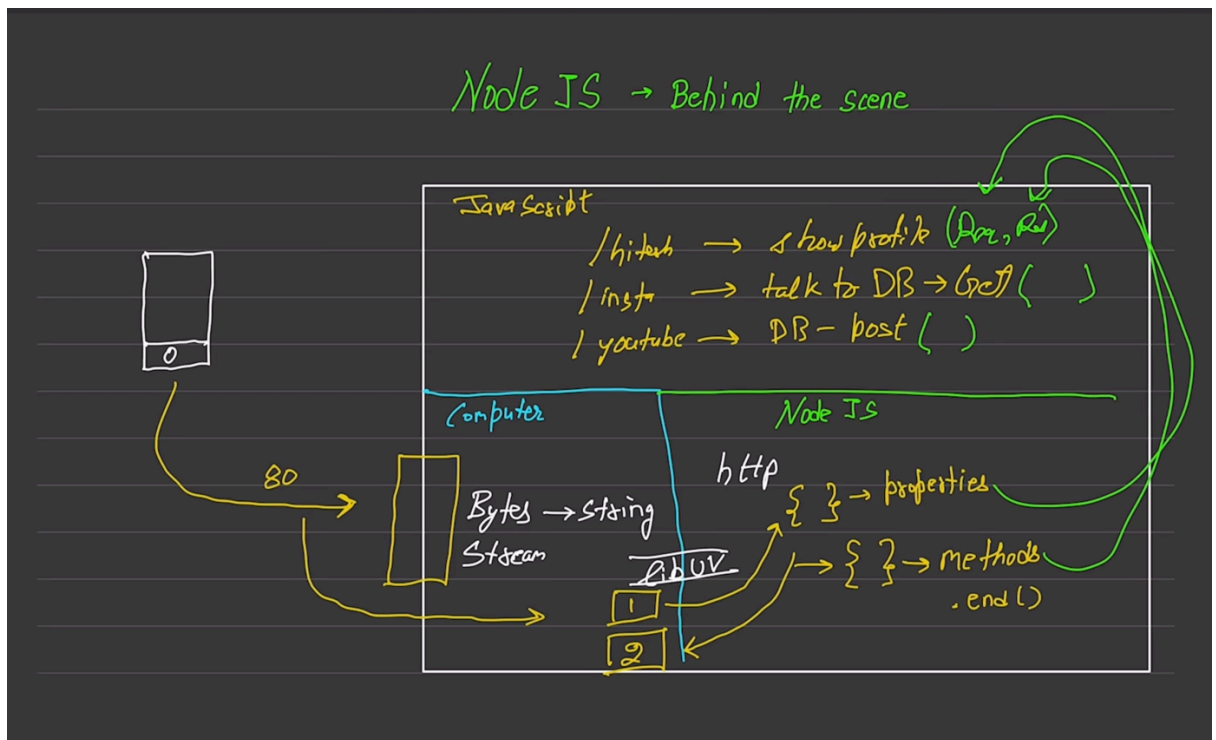 Node JS → Behind the scene
JavaScript
/hitesh → show profile (Req, Res)
/insta → talk to DB → Get ( )
/ youtube → DB - post ( )
Computer
Node JS
80
http
{ } → properties
Bytes → string
Stream
lib UV
→ { } → methods
.end()
1
2